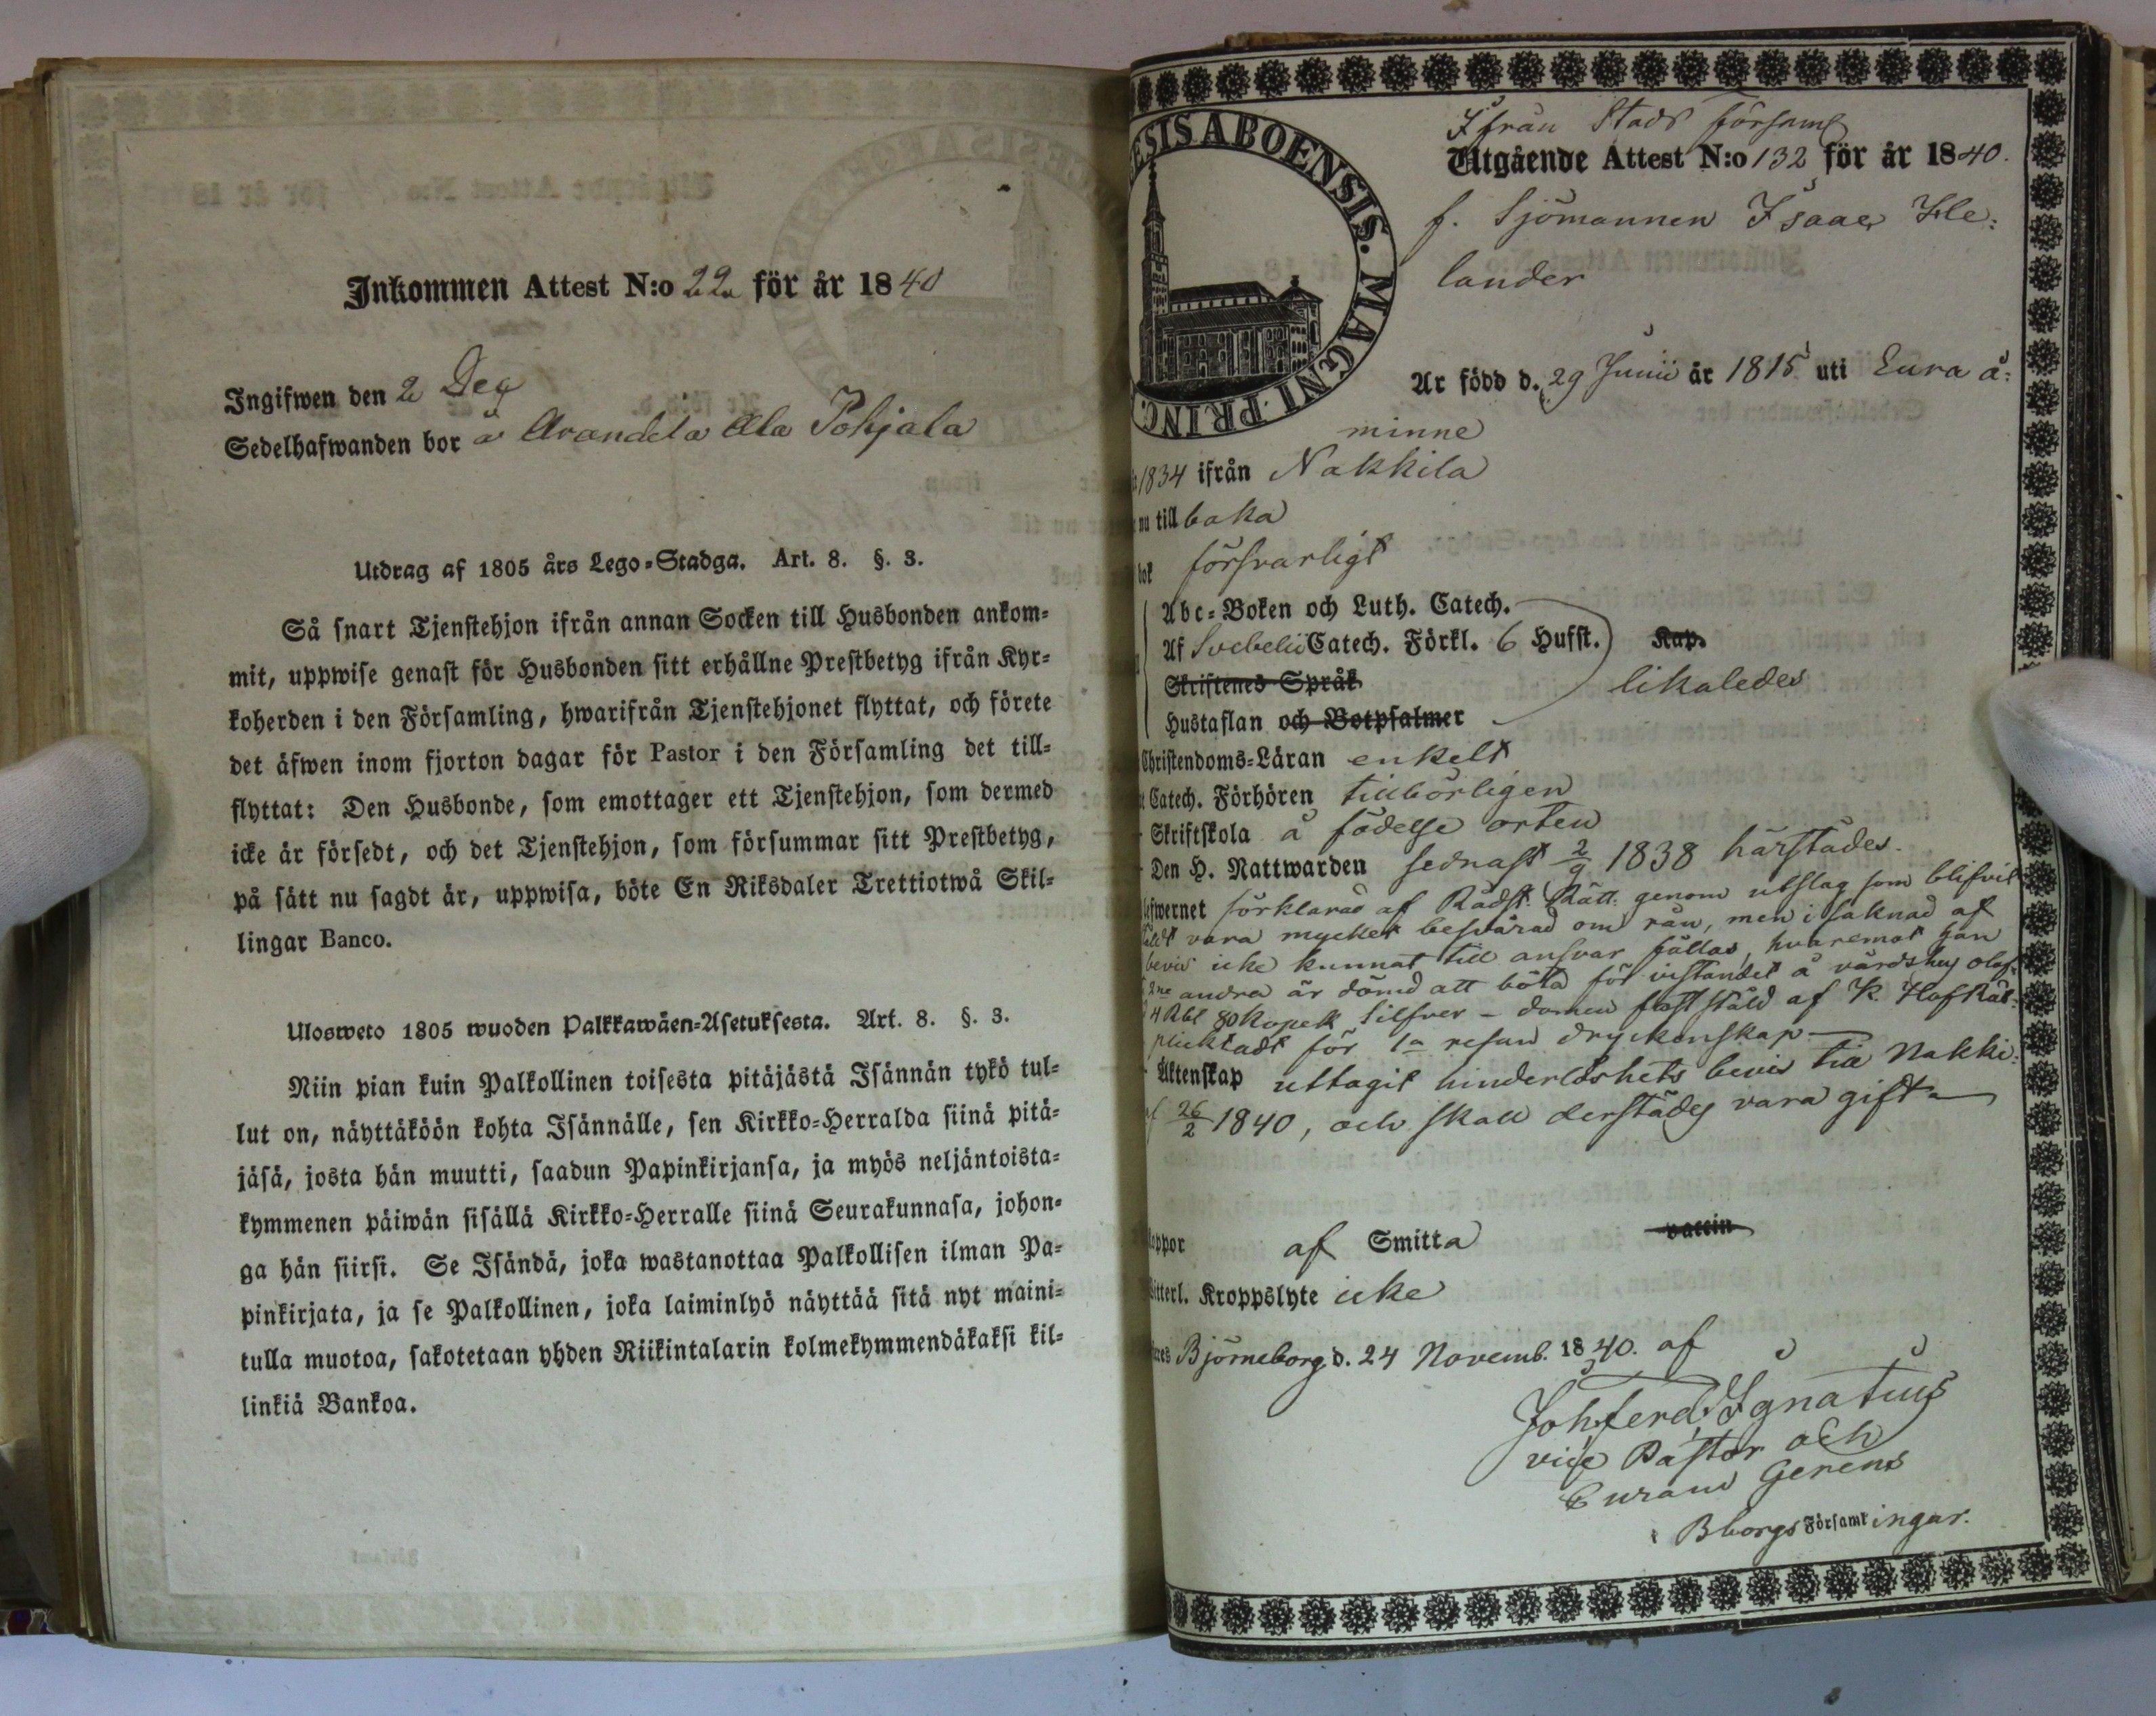 Inkommen Attest N:o 22 för år 1840
Ingifwen den 2 Dec
Sedelhafwanden bor å Arandila Ala Pohjala
Utdrag af 1805 års Lego-Stadga. Art. 8. §. 3.
Så snart Tjenstehjon ifrån annan Socken till Husbonden ankom-
mit, uppwise genast för Husbonden sitt erhållne Prestbetyg ifrån Kyr-
koherden i den Församling, hwarifrån Tjenstehjonet flyttat, och förete
det äfwen inom fjorton dagar för Pastor i den Församling det till-
flyttat: Den Husbonde, som emottager ett Tjenstehjon, som dermed
icke är försedt, och det Tjenstehjon, som försummar sitt Prestbetyg,
på sätt nu sagdt är, uppwisa, böte En Riksdaler Trettiotwå Skil-
lingar Banco.
Ulosweto 1805 wuoden Palkkawäen-Asetuksesta. Art. 8. §. 3.
Niin pian kuin Palkollinen toisesta pitäjästä Isännän tykö tul-
lut on, näyttäköön kohta Isännälle, sen Kirkko-Herralda siinä pitä-
jäsä, josta hän muutti, saadun Papinkirjansa, ja myös neljäntoista-
kymmenen päiwän sisällä Kirkko-Herralle siinä Seurakunnasa, johon-
ga hän siirsi. Se Isändä, joka wastanottaa Palkollisen ilman Pa-
pinkirjata, ja se Palkollinen, joka laiminlyö näyttää sitä nyt maini-
tulla muotoa, sakotetaan yhden Riikintalarin kolmekymmendäkaksi kil-
linkiä Bankoa.
ESIS ABOENSIS. MAGNI PRINC
Ifrån Stads församl
Utgående Attest N:o 132 för år 1840.
f. Sjömannen Isaac Hle:
lander
Är född d. 29 Junii år 1815 uti Eura å:
minne
1834 ifrån Nakkila
nu tillbaka
bok försvarligt
Abc-Boken och Luth. Catech.
Af Svebelii Catech. Förkl. 6 Hufst. Kap.
Skriftenes Språk likaledes
Hustaflan och Botpsalmer
Christendoms-Läran enkelt
Catech. Förhören tillbörligen
Skriftskola å födelse orten
Den H. Nattwarden sednast 2/9 1838 härstädes.
lefwernet förklarad af Rådst. Rätt. genom utslag som blifvit
vara mycket besvärad om rån, men i saknad af
bevis icke kunnat till ansvar fällas, hvaremot han
andra är dömd att böta för vistandet å värdshus
4 Rbl 80 Kopek Silfver - domen fastställd af K. HofRätt
plicktadt för 1a resan dryckenskap
Äktenskap uttagit hinderlöshets bevis till Nakki:
26/2 1840, och skall derstädes vara gift
koppor af Smitta vaccin
Witterl. Kroppslyte icke
Björneborg d. 24 Novemb. 1840. af
Joh. Ferd. Ignatius
vice Pastor och
Curam Gerens
i Bborgs Församlingar.